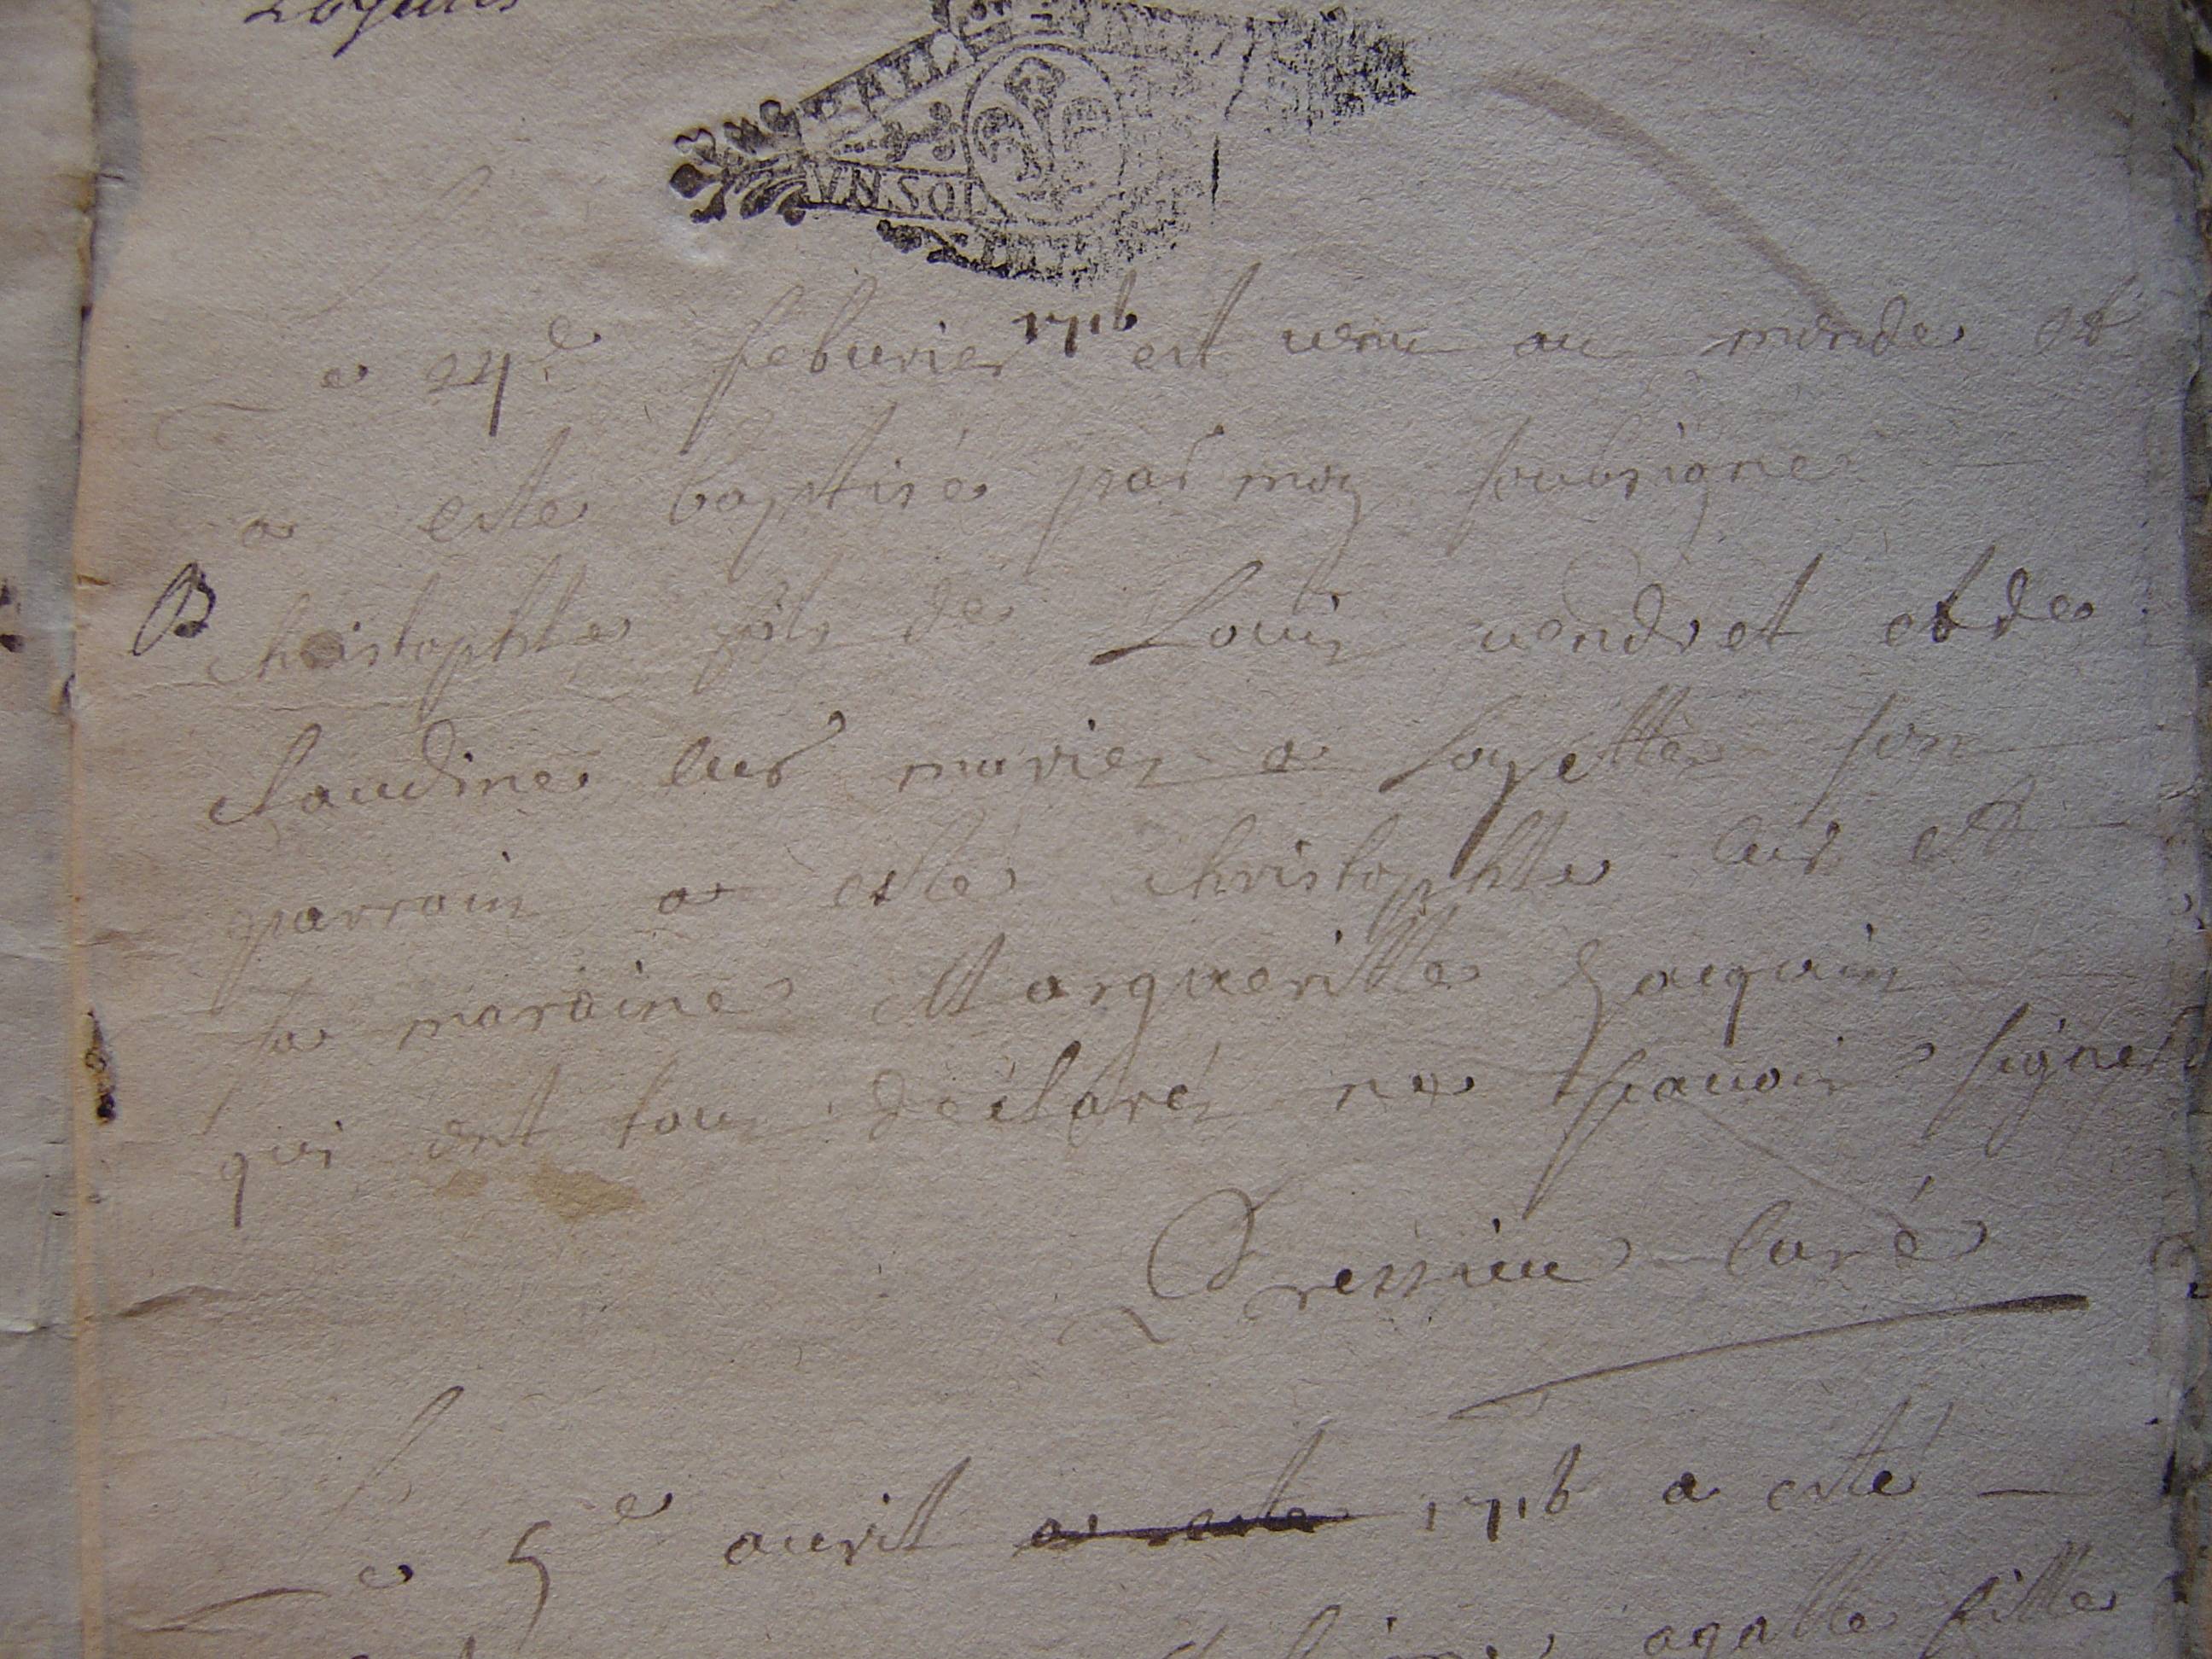 VN SOL
Le 24e feburier 1716 est venu au monde et
a esté baptisé par moy soubsigné
B
christophle fils de Louis vendret et de
claudine lus mariez a soyette son
parrain a esté christophle lus et
sa maraine Margueritte Gauguin
qui ont tous déclaréz ne scavoir signer
curé
Le 5e avril a esté 1716 a esté
agatte fille